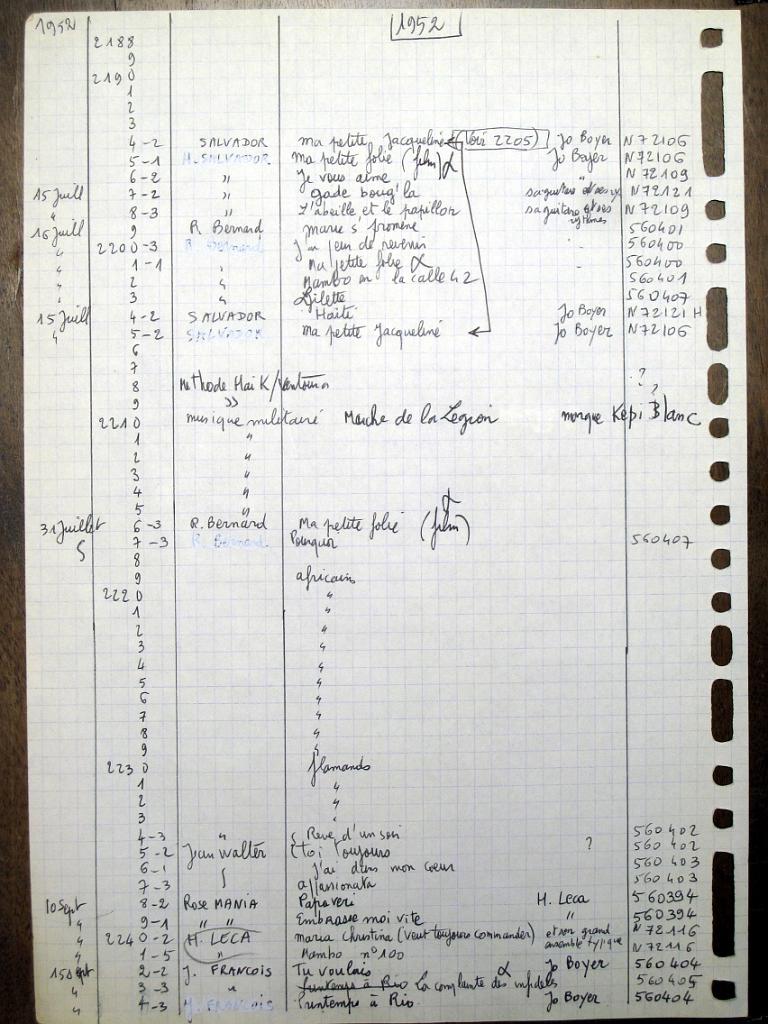 1952 1952
2188
9
2190
1
2
3
4-2 SALVADOR ma petite Jacqueline (Voir 2205) Jo Boyer N72106
5-1 H. SALVADOR ma petite folie (film) α Jo Boyer N72106
6-2 " Je vous aime " N72109
15 Juill 7-2 " gade boug'la saguitaro et ses N72121
" 8-3 " L'abeille et le papillon saguitaro et ses rythmes N72109
16 Juill 9 R. Bernard marie s' promène 560401
" 2200-3 R. Bernard J'ai peur de revenir 560400
" 1-1 " Ma petite folie α 560400
" 2 " Mambo en la calle 42 560401
" 3 " Gilette 560407
15 Juill 4-2 SALVADOR Haïti Jo Boyer N72121 H
" 5-2 SALVADOR ma petite Jacqueline Jo Boyer N72106
6
7
8 Methode Haik/Ventoura ?
9 " ?
2210 musique militaire Marche de la Legion marque Képi Blanc
1 "
2 "
3 "
4 "
5 "
31 Juillet 6-3 R. Bernard Ma petite folie (film) α
7-3 R. Bernard Pourquoi 560407
8
9 africains
2220 "
1 "
2 "
3 "
4 "
5 "
6 "
7 "
8 "
9 "
2230 flamands
1 "
2 "
3 "
4-3 " Reve d'un soir 560402
5-2 Jean Walter toi toujours ? 560402
6-1 J'ai dans mon coeur 560403
7-3 appassionata 560403
10 Sept 8-2 Rose MANIA Papaveri H. Leca 560394
" 9-1 " " Embrasse moi vite " 560394
" 2240-2 H. LECA maria Christina (veut toujours commander) et son grand ensemble typique N72116
" 1-5 " Mambo n°100 N72116
15 Sept 2-2 J. FRANCOIS Tu voulais Jo Boyer 560404
" 3-3 " Printemps à Rio La complainte des infideles α 560405
" 4-3 J. FRANCOIS Printemps à Rio Jo Boyer 560404